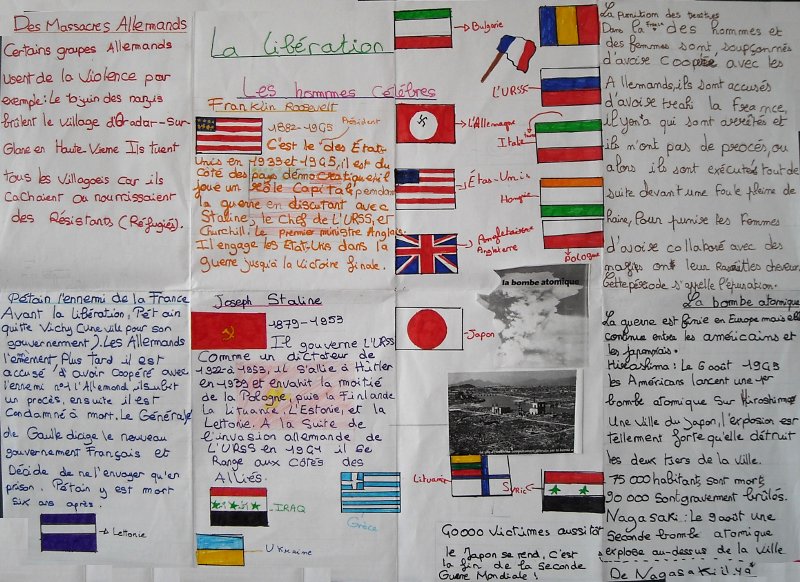 Des Massacres Allemands
Certains groupes Allemands
usent de la Violence par
exemple: Le 10 juin des nazis
brûlent le village d'Oradar-Sur-
Glane en Haute-Vienne Ils tuent
tous les Villageois car ils
cachaient ou nourissaient
des Résistants (Réfugiés).
La libération
Les hommes Célébres
Franklin Roosevelt
1882-1945
Président
C'est le des États-
Unis en 1939 et 1945, il est du
côté des pays démocratique il
joue un rôle Capital pendant
la guerre en discutant avec
Staline, le Chef de L'URSS, et
Churchill. Le premier ministre Anglais.
Il engage les États-Unis dans la
guerre jusqu'à la Victoire finale.
Bulgarie
L'URSS
L'Allemagne
Italie
États-Unis
Hongrie
Angleterre
Pologne
La punition des traitres
Dans la France des hommes et
des femmes sont, soupçonnés
d'avoire Coopérée avec les
Allemands, ils sont accusés
d'avoire trahi la France,
il y en a qui sont arrêtés et
ils n'ont pas de procés, ou
alors ils sont exécutés tout de
suite devant une foule pleine de
haine, Pour punire les Femmes
d'avoire collaboré avec des
nazis ont leur cheveux.
Cette période s'appelle l'épuration.
Pétain l'ennemi de la France
Avant la Libération, Pétain
quitte Vichy (une ville pour son
gouvernement). Les Allemands
l'emènent, Plus tard il est
accusé d'avoir Coopéré avec
l'ennemi n°1 l'Allemand, il subit
un procès, ensuite il est
Condamné à mort. Le Générale
de Gaulle dirige le nouveau
gouvernement Français et
Décide de ne l'envoyer qu'en
prison. Pétain y est mort
six ans après.
Lettonie
Joseph Staline
1879-1953
Il gouverne L'URSS
Comme un dictateur de
1922 à 1953, il s'allie à Hitler
en 1939 et envahit la moitié
de la Pologne, puis la Finlande
la Lituanie. L'Estonie, et la
Lettonie. A la Suite de
l'invasion allemande de
L'URSS en 1941 il se
Range aux Côtés des
Alliés.
IRAQ
Ukraine
Grèce
Japon
la bombe atomique
Lituanie
Syrie
90000 Victimes aussitôt
le Japon se rend, C'est
la fin de la seconde
Guerre Mondiale !
La bombe atomique
La guerre est finie en Europe mais elle
continue entre les américains et
les japonnais.
Hiroshima: Le 6 août 1945
les Américans lancent une 1er
bombe atomique Sur Hiroshima
Une ville du Japon, l'explosion est
tellement forte qu'elle détruit
les deux tiers de la ville.
75 000 habitants, sont mort,
90 000 sont gravement brûlés.
Nagasaki: Le 9 août une
seconde bombe atomique
explose au-dessus de la ville
De Nagasaki il ya